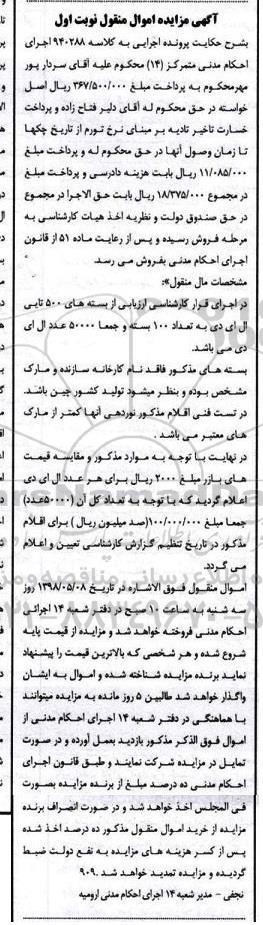 آگهی مزایده اموال منقول نوبت اول
بشرح حکایت پرونده اجرایی به کلاسه ۹۴۰۲۸۸ اجرای
احکام مدنی متمرکز (۱۴) محکوم علیه آقای سردار پور
مهر محکوم به پرداخت مبلغ ۳۶۷/۵۰۰/۰۰۰ ریال اصل
خواسته در حق محکوم له آقای دلیر فتاح زاده و پرداخت
خسارت تاخیر تادیه بر مبنای نرخ تورم از تاریخ چکها
تا زمان وصول آنها در حق محکوم له و پرداخت مبلغ
۱۱/۰۸۵/۰۰۰ ریال بابت هزینه دادرسی و پرداخت مبلغ
در مجموع ۱۸/۳۷۵/۰۰۰ ریال بابت حق الاجرا در مجموع
در حق صندوق دولت و نظریه اخذ هیات کارشناسی به
مرحله فروش رسیده و پس از رعایت ماده ۵۱ از قانون
اجرای احکام مدنی بفروش می رسد.
مشخصات مال منقول»:
در اجرای قرار کارشناسی ارزیابی از بسته های ۵۰۰ تایی
ال ای دی به تعداد ۱۰۰ بسته و جمعا ۵۰۰۰۰ عدد ال ای
دی می باشد.
بسته های مذکور فاقد نام کارخانه سازنده و مارک
مشخص بوده و بنظر میشود تولید کشور چین باشد.
در تست فنی اقلام مذکور نوردهی آنها کمتر از مارک
های معتبر می باشد .
در نهایت با توجه به موارد مذکور و مقایسه قیمت
های بازر مبلغ ۲۰۰۰ ریال برای هر عدد ال ای دی
اعلام گردید که با توجه به تعداد کل آن (۵۰۰۰۰عدد)
جمعا مبلغ ۱۰۰/۰۰۰/۰۰۰(صد میلیون ریال ) برای اقلام
مذکور در تاریخ تنظیم گزارش کارشناسی تعیین و اعلام
می گردد.
اموال منقول فوق الاشاره در تاریخ ۱۳۹۸/۰۵/۰۸ روز
سه شنبه به ساعت ۱۰ صبح در دفتر شعبه ۱۴ اجرائی
احکام مدنی فروخته خواهد شد و مزایده از قیمت پایه
شروع شده و هر شخصی که بالاترین قیمت را پیشنهاد
نماید برنده مزایده شناخته شده و اموال به ایشان
واگذار خواهد شد طالبین ۵ روز مانده به مزایده میتوانند
با هماهنگی در دفتر شعبه ۱۴ اجرای احکام مدنی از
اموال فوق الذکر مذکور بازدید بعمل آورده و در صورت
تمایل در مزایده شرکت نمایند و طبق قانون اجرای
احکام مدنی ده درصد مبلغ از برنده مزایده بصورت
فی المجلس اخذ خواهد شد و در صورت انصراف برنده
مزایده از خرید اموال منقول مذکور ده درصد اخذ شده
پس از کسر هزینه های مزایده به نفع دولت ضبط
گردیده و مزایده تمدید خواهد شد .۹۰۹
نجفی - مدیر شعبه ۱۴ اجرای احکام مدنی ارومیه